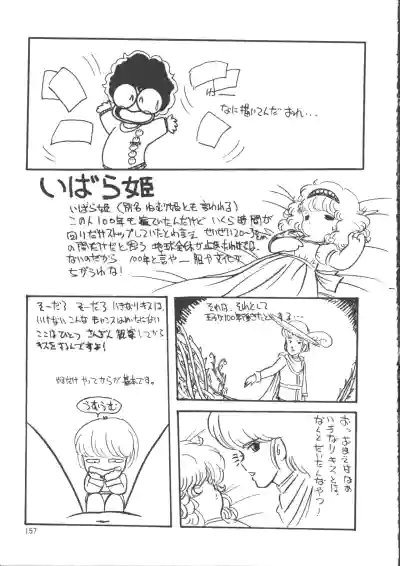 なに描いてんだ おれ…
いばら姫
いばら姫(別名 ねむり姫とも言われる)
この人100年も寝ていたんだけど いくら時間が
回りだけストップしていたとわ言え せいぜい20〜30
の間だけだと思う 地球全体が止まるわけでは
ないのだから 100年と言や 服や文化が
ちがうわな!
それは、それとして
王子が100年後きたとする…
そーだろ そーだろ いきなりキスは
いけない こんな チャンスはめったにない
ここはひとつ さんざん 観察してから
キスをするんですよ!
やってからが基本です。
うむうむ
おっ おまえはなぁ
いきなりキスとは
なんとだいたんな
なやつ!
157